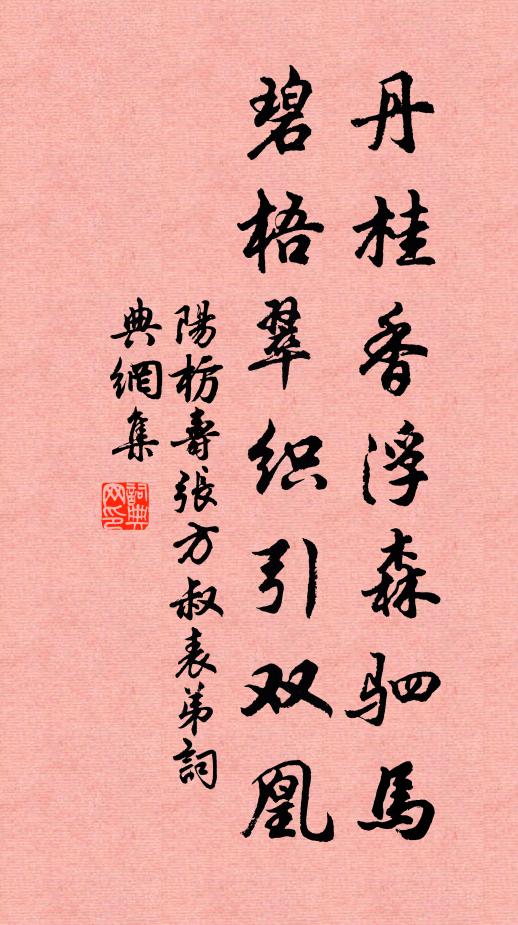 丹桂香浮森驷馬
碧梧翠织引双凰
陽枋壽張方叔表弟詞
典網集
詞典網印